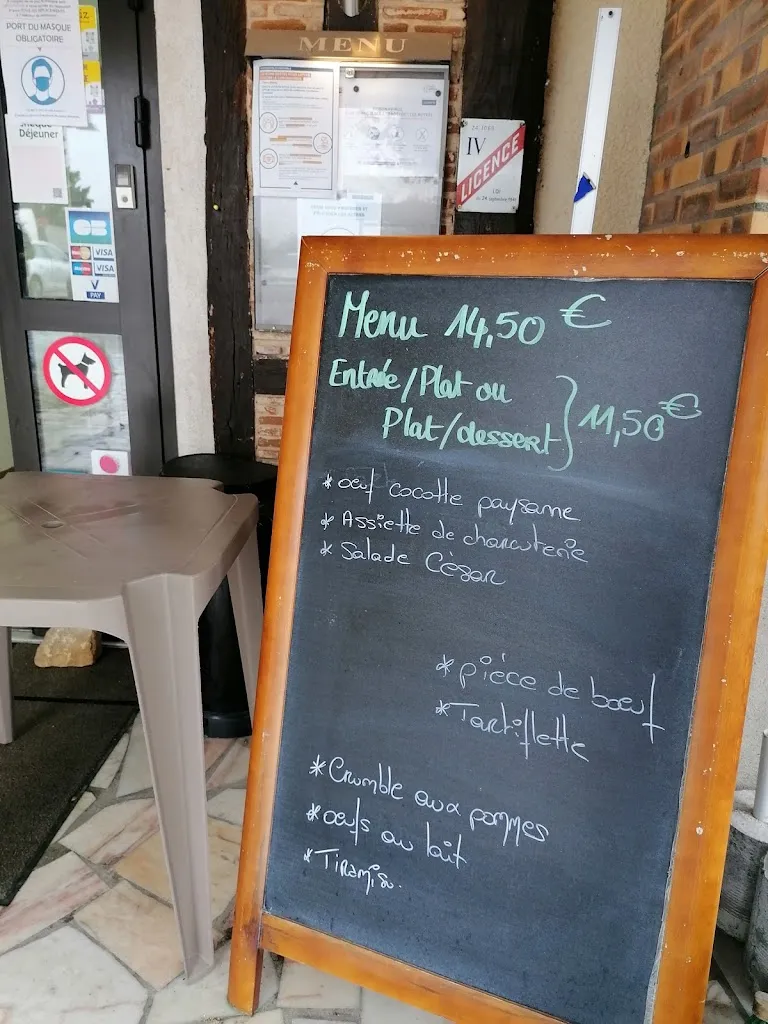 PORT DU MASQUE
OBLIGATOIRE
Déjeuner
CB
VISA
VISA
V
PAY
MENU
IV
LICENCE
Menu 14,50 €
Entrée/Plat ou
Plat/dessert } 11,50 €
* oeuf cocotte paysanne
* Assiette de charcuterie
* Salade César
* pièce de boeuf
* Tartiflette
* Crumble aux pommes
* oeufs au lait
* Tiramisu.